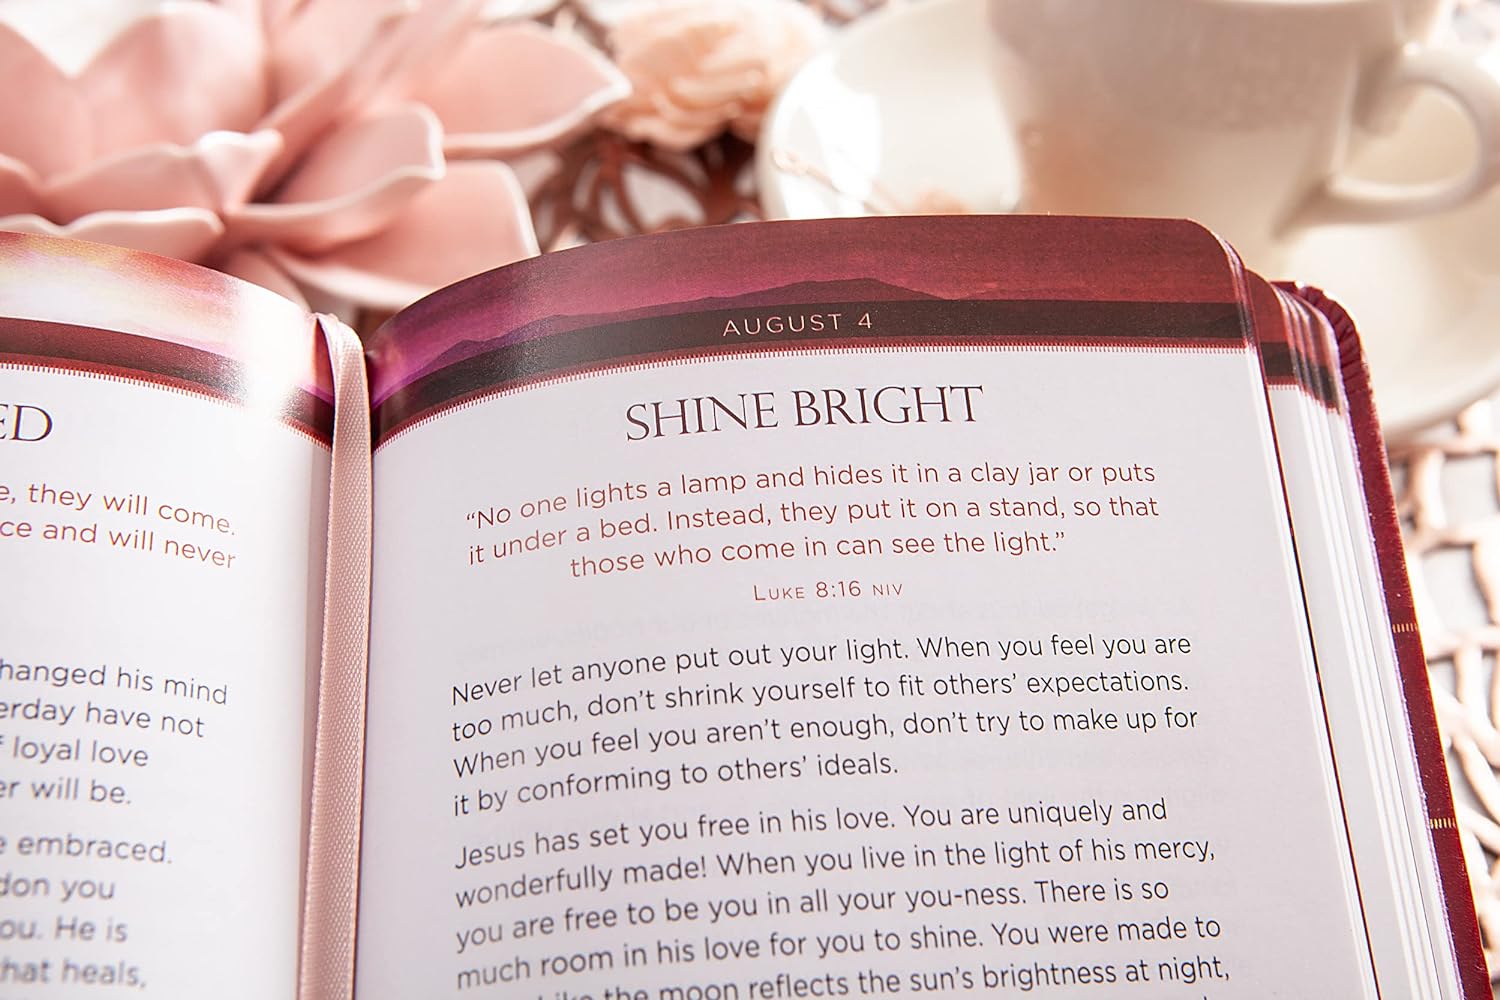 ED
they will come.
and will never
his mind
have not
loyal love
will be.
embraced.
you
He is
heals,
AUGUST 4
SHINE BRIGHT
“No one lights a lamp and hides it in a clay jar or puts
it under a bed. Instead, they put it on a stand, so that
those who come in can see the light.”
LUKE 8:16 NIV
Never let anyone put out your light. When you feel you are
too much, don’t shrink yourself to fit others’ expectations.
When you feel you aren’t enough, don’t try to make up for
it by conforming to others’ ideals.
Jesus has set you free in his love. You are uniquely and
wonderfully made! When you live in the light of his mercy,
you are free to be you in all your you-ness. There is so
much room in his love for you to shine. You were made to
the moon reflects the sun’s brightness at night,